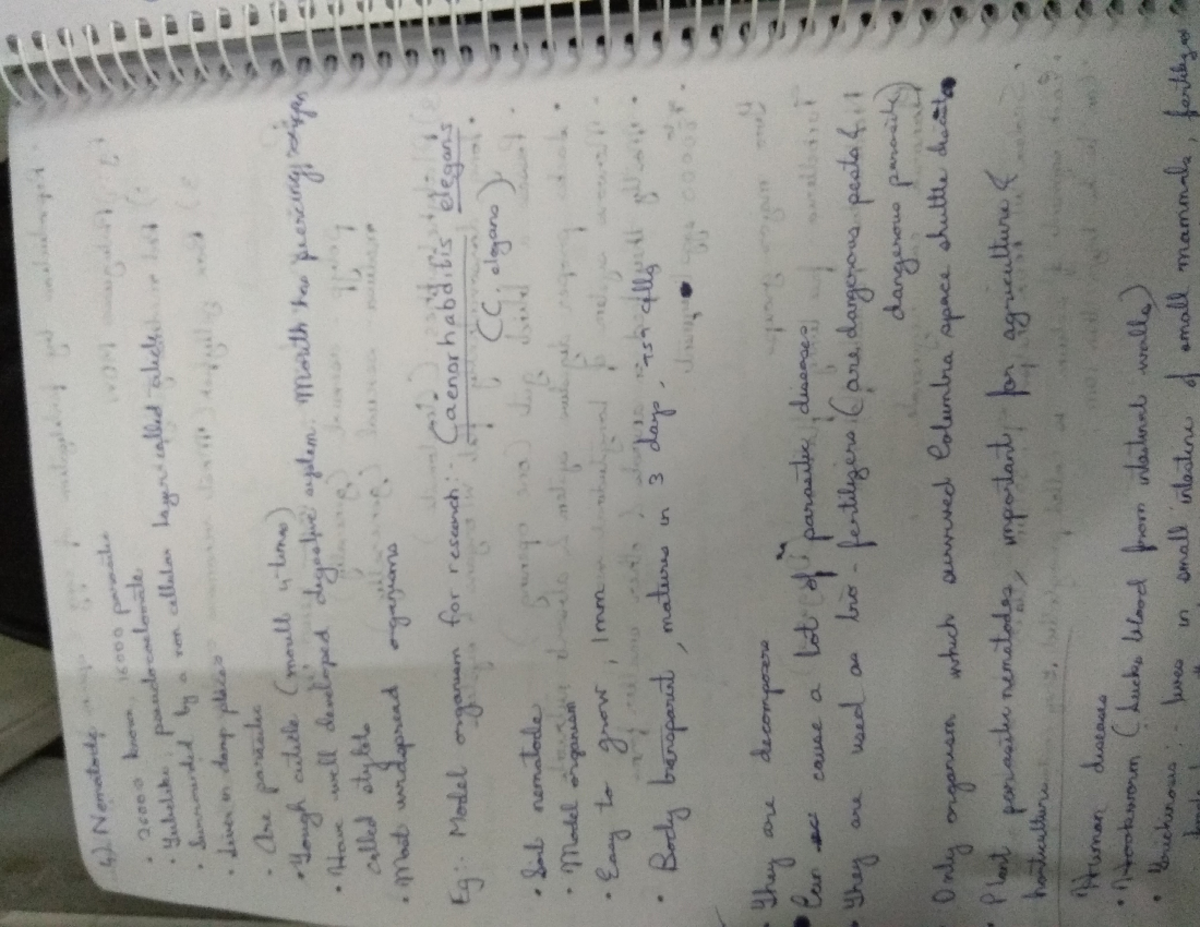 4) Nematode
• 20000 known, 16000 parasitic
• Tubelike, pseudocoelomate
• Surrounded by a non cellular layer called
• Live in damp places
• Are parasitic
• Tough cuticle (moult 4-times)
• Have well developed digestive system. Mouth has piercing
called stylets
• Most widespread organisms
Eg:- Model organism for research:- Caenorhabditis elegans
(C. elegans)
• Soil nematode
• Model organism
• Easy to grow, 1mm
• Body transparent, matures in 3 days, 959 cells
• They are decomposers
• Can cause a lot of parasitic diseases
• They are used as bio-fertilizers (are dangerous pests &
dangerous parasite)
Only organism which survived Columbia space shuttle
• Plant parasitic nematodes, important for agriculture &
horticulture
Human diseases
• Hookworm (sucks blood from intestinal walls)
• Trichenosis:- lives in small intestine of small mammals,